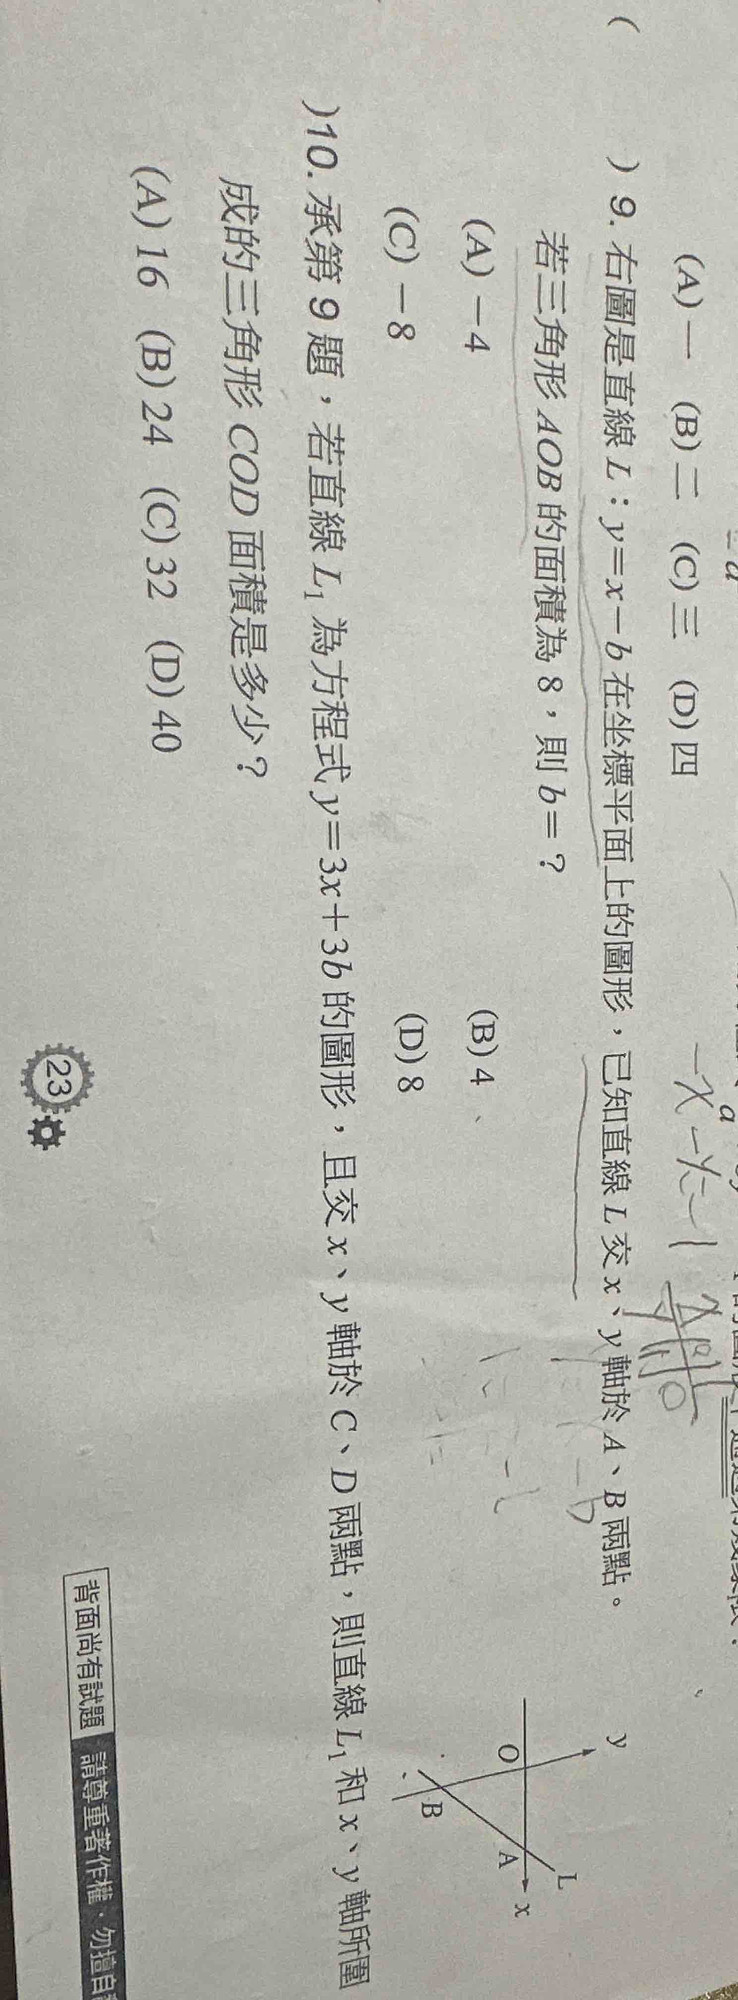 (A)一 (B)二 (C)三 (D)四
( )9. 右圖是直線 L：y=x-b 在坐標平面上的圖形，已知直線 L 交 x、y 軸於 A、B 兩點。
若三角形 AOB 的面積為 8，則 b=？
(A)-4 (B)4
(C)-8 (D)8
y
O
A
x
L
B
)10. 承第 9 題，若直線 L₁ 為方程式 y=3x+3b 的圖形，且交 x、y 軸於 C、D 兩點，則直線 L₁ 和 x、y 軸所圍
成的三角形 COD 面積是多少？
(A)16 (B)24 (C)32 (D)40
23
背面尚有試題 請尊重著作權，勿擅自